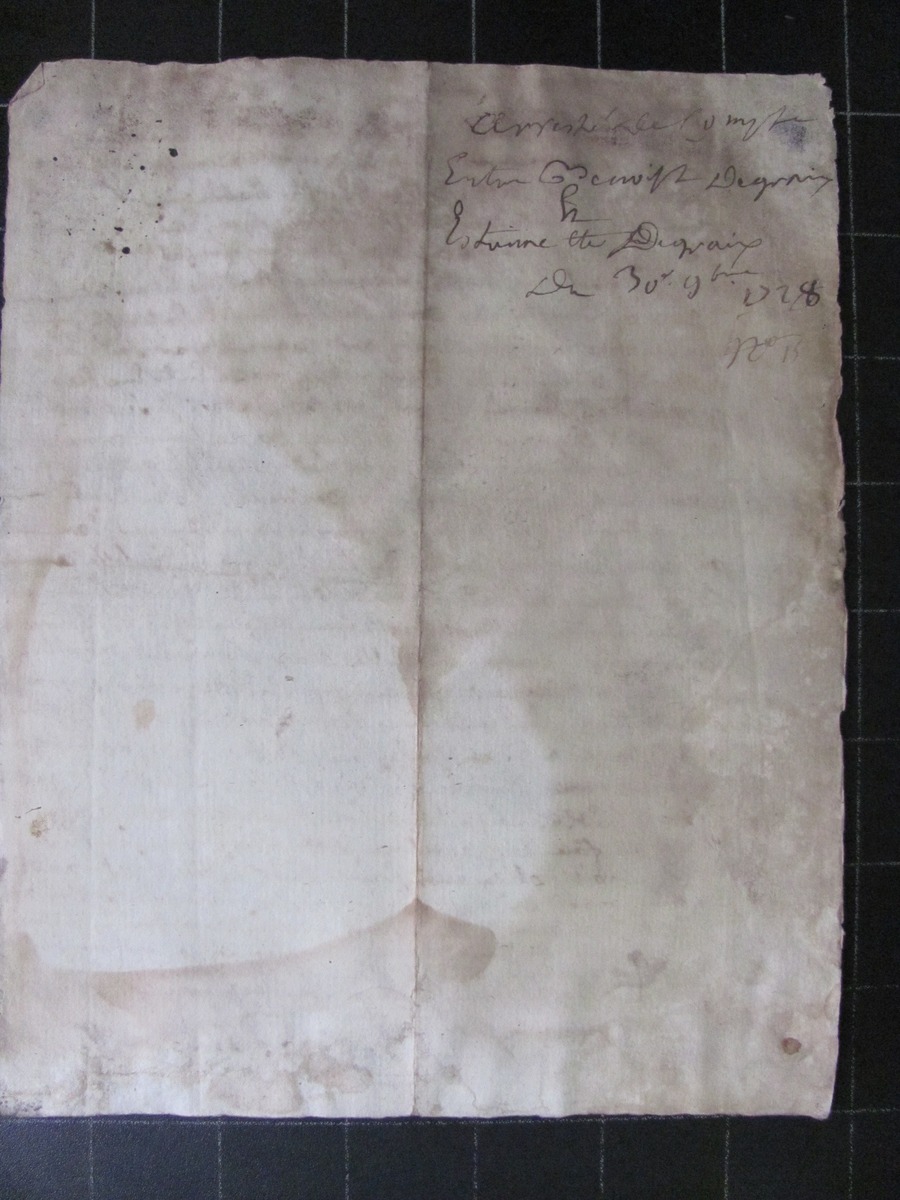 Arresté de Compte
Entre Benoist Degraix
Et
Estiennette Degraix
Du 30e 9bre 1728